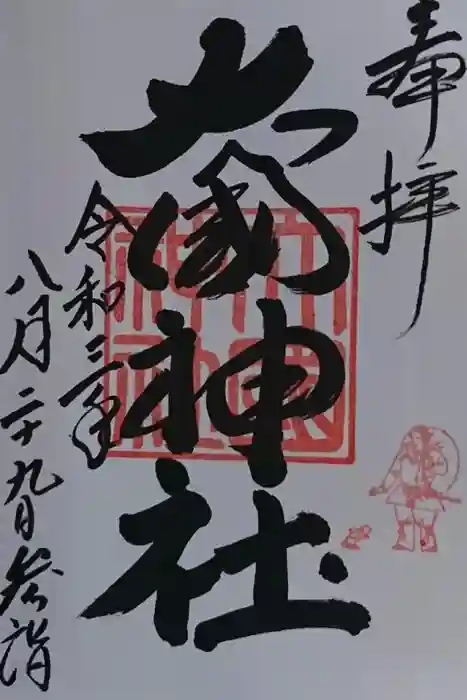 奉拝
大國神社
令和三年
八月二十九日参詣